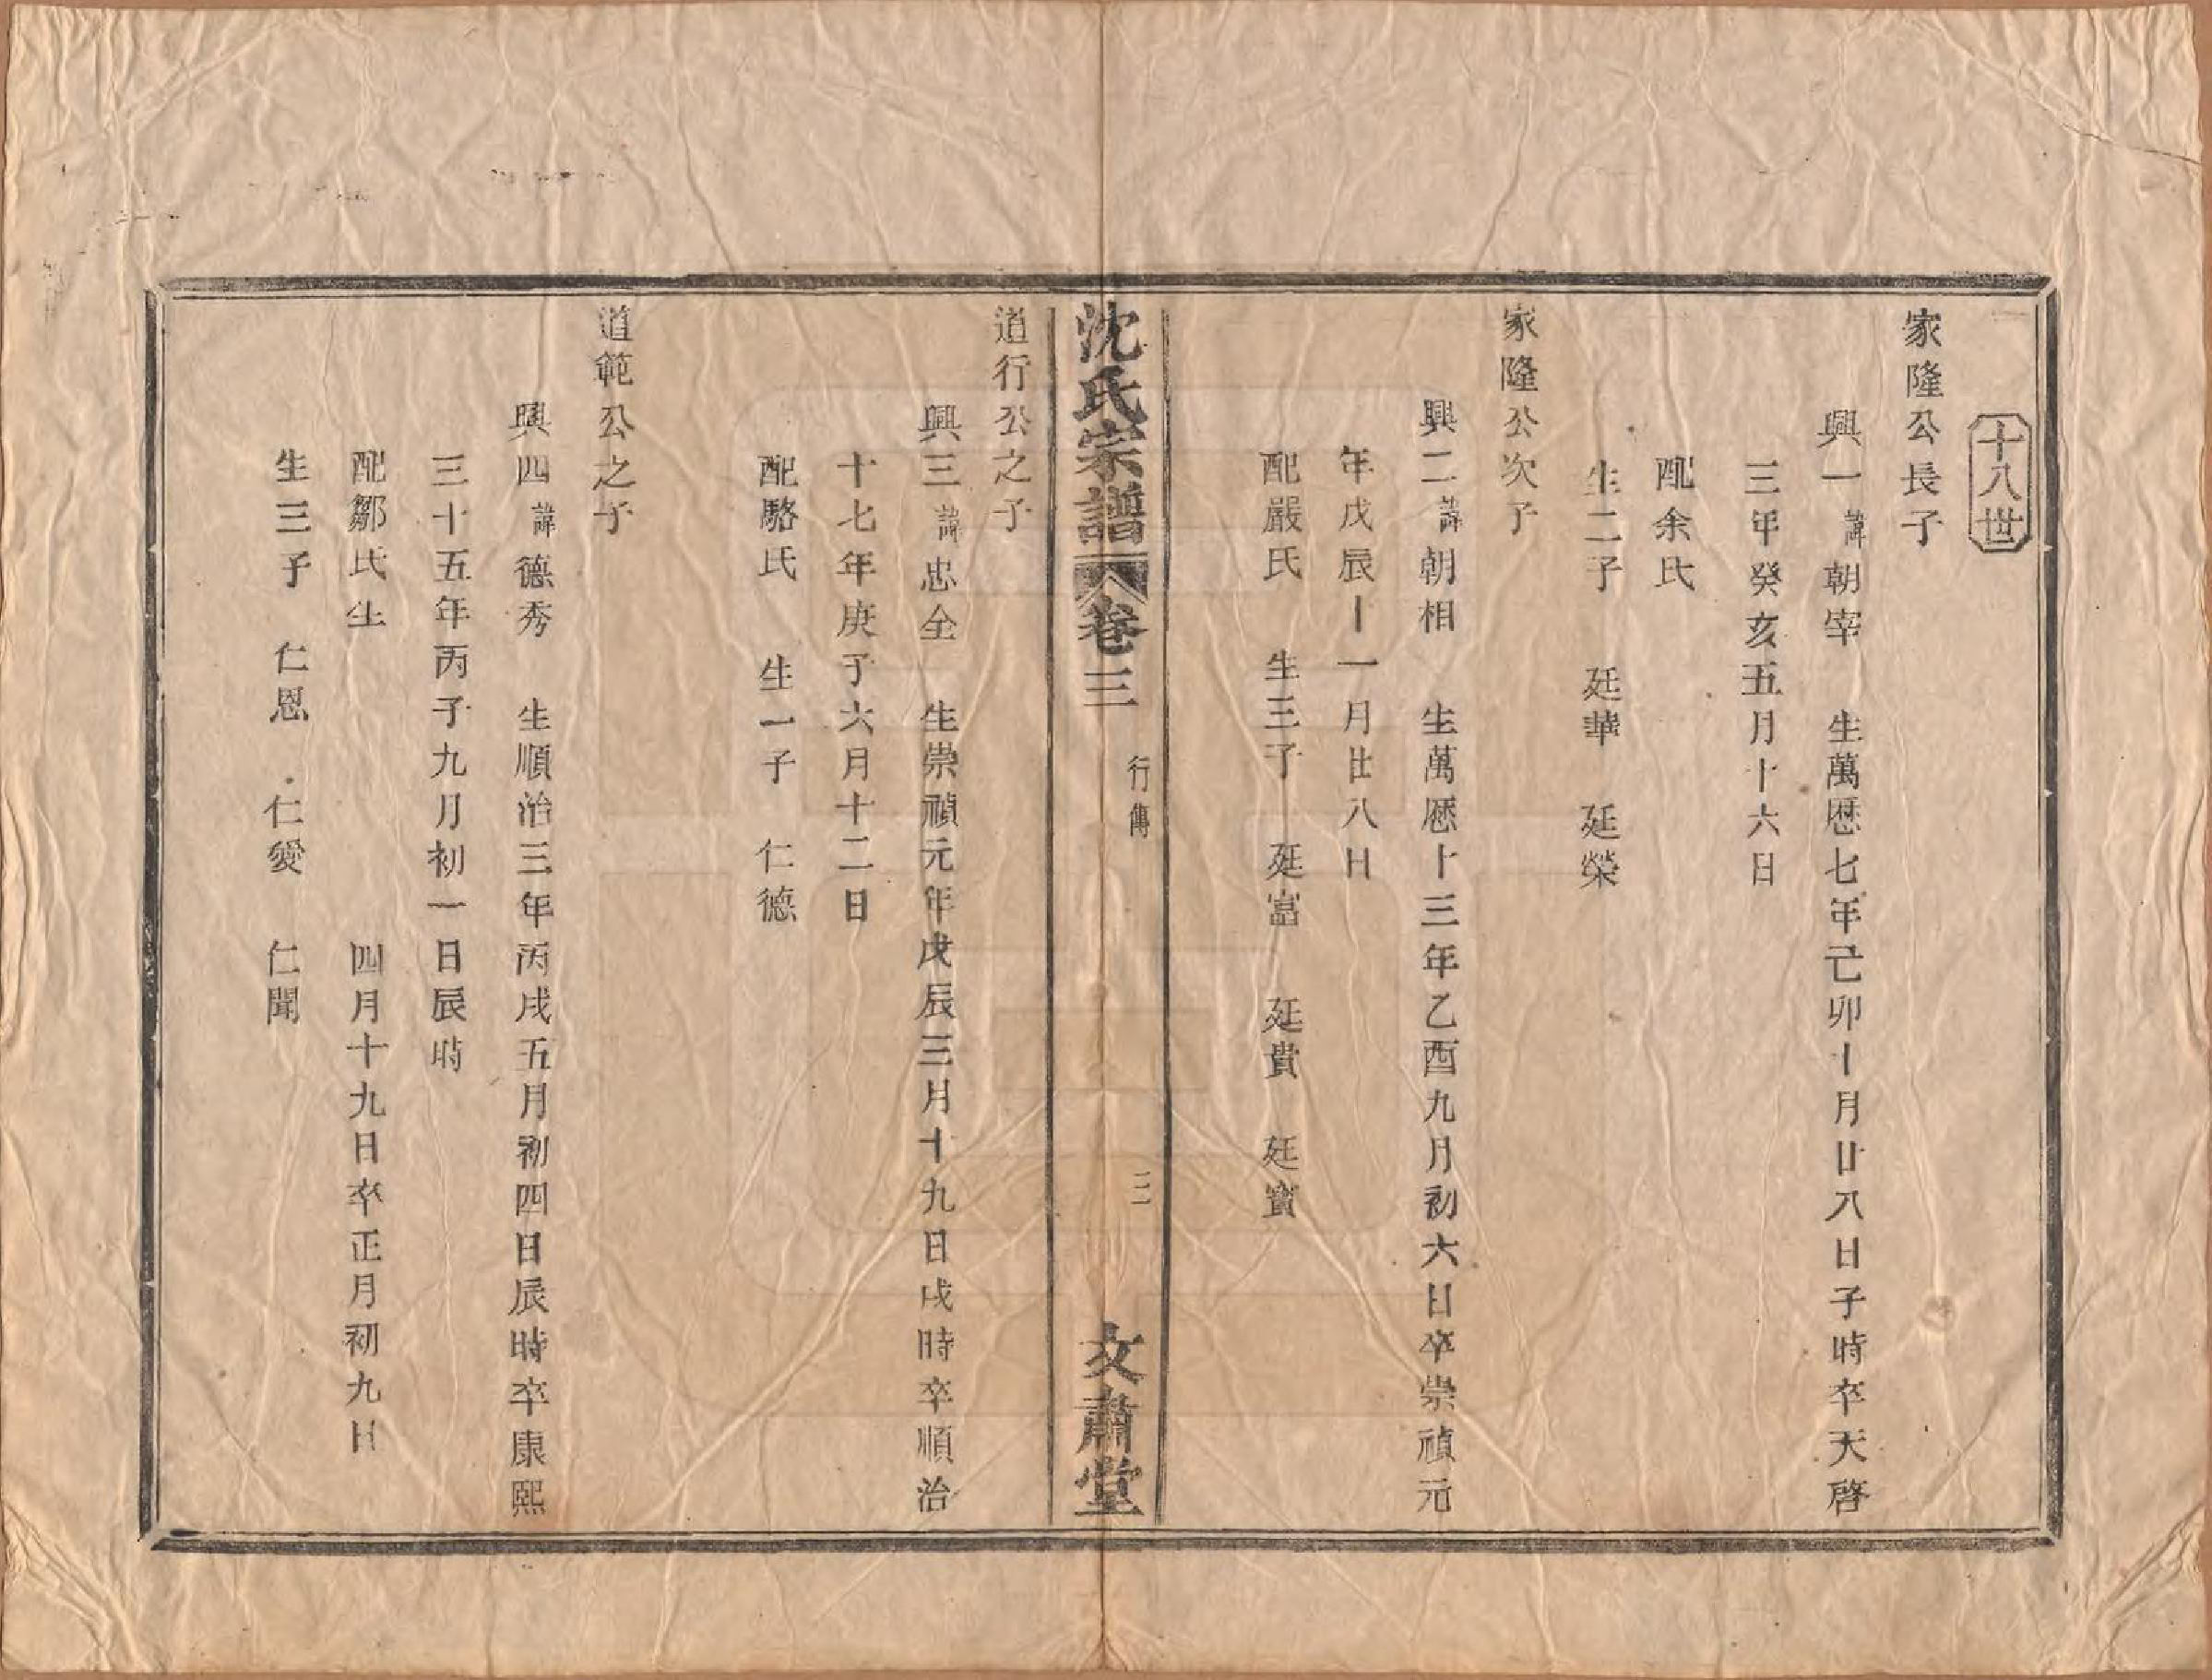 十八世
家隆公長子
興一諱朝宰　生萬厯七年己卯十月廿八日子時卒天啓
三年癸亥五月十六日
配余氏
生二子　廷華　廷榮
家隆公次子
興二諱朝相　生萬厯十三年乙酉九月初六日卒崇禎元
年戊辰十一月廿八日
配嚴氏　生三子　廷富　廷貴　廷寳
沈氏宗譜　卷三　行傳　二　文肅堂
道行公之子
興三諱忠全　生崇禎元年戊辰三月十九日戌時卒順治
十七年庚子六月十二日
配駱氏　生一子　仁德
道範公之子
興四諱德秀　生順治三年丙戌五月初四日辰時卒康熙
三十五年丙子九月初一日辰時
配鄒氏生　四月十九日卒正月初九日
生三子　仁恩　仁愛　仁聞